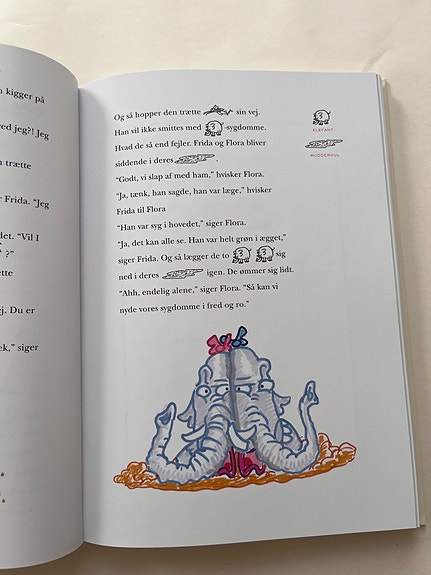 n kigger på
ved jeg?! Jeg
n trætte
Frida. "Jeg
det. "Vil I
?"
ætte
j. Du er
ek," siger
Og så hopper den trætte sin vej.
Han vil ikke smittes med -sygdomme.
Hvad de så end fejler. Frida og Flora bliver
siddende i deres .
"Godt, vi slap af med ham," hvisker Flora.
"Ja, tænk, han sagde, han var læge," hvisker
Frida til Flora
"Han var syg i hovedet," siger Flora.
"Ja, det kan alle se. Han var helt grøn i ægget,"
siger Frida. Og så lægger de to sig
ned i deres igen. De ømmer sig lidt.
"Ahh, endelig alene," siger Flora. "Så kan vi
nyde vores sygdomme i fred og ro."
ELEFANT
MUDDERHUL